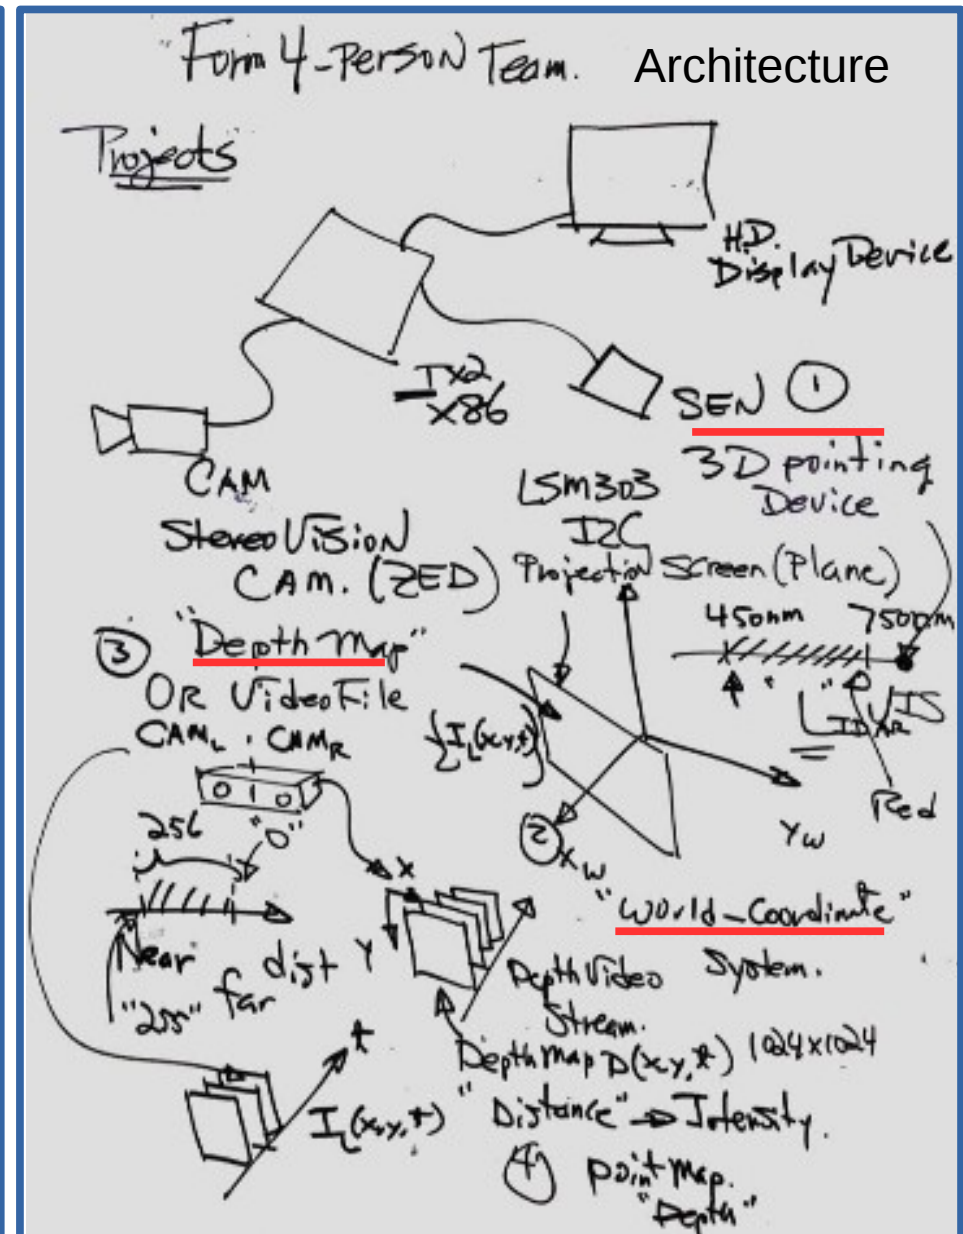 Form 4-Person Team.
Architecture
Projects
H.D.
Display Device
TX2
X86
SEN ①
3D pointing
Device
CAM
Stereo Vision
CAM. (ZED)
LSM303
I2C
Projection Screen (Plane)
450nm 750nm
③ "Depth Map"
OR Video File
CAM_L . CAM_R
{I_L(x,y,t)}
LIDAR
VIS
Red
256
"0"
② X_w
Y_w
"World-Coordinate"
System.
X
Y
Near
far
dist
"255"
Depth Video
Stream.
t
I_L(x,y,t)
Depth Map D(x,y,t) 1024x1024
"Distance" → Intensity.
④ point map.
"Depth"